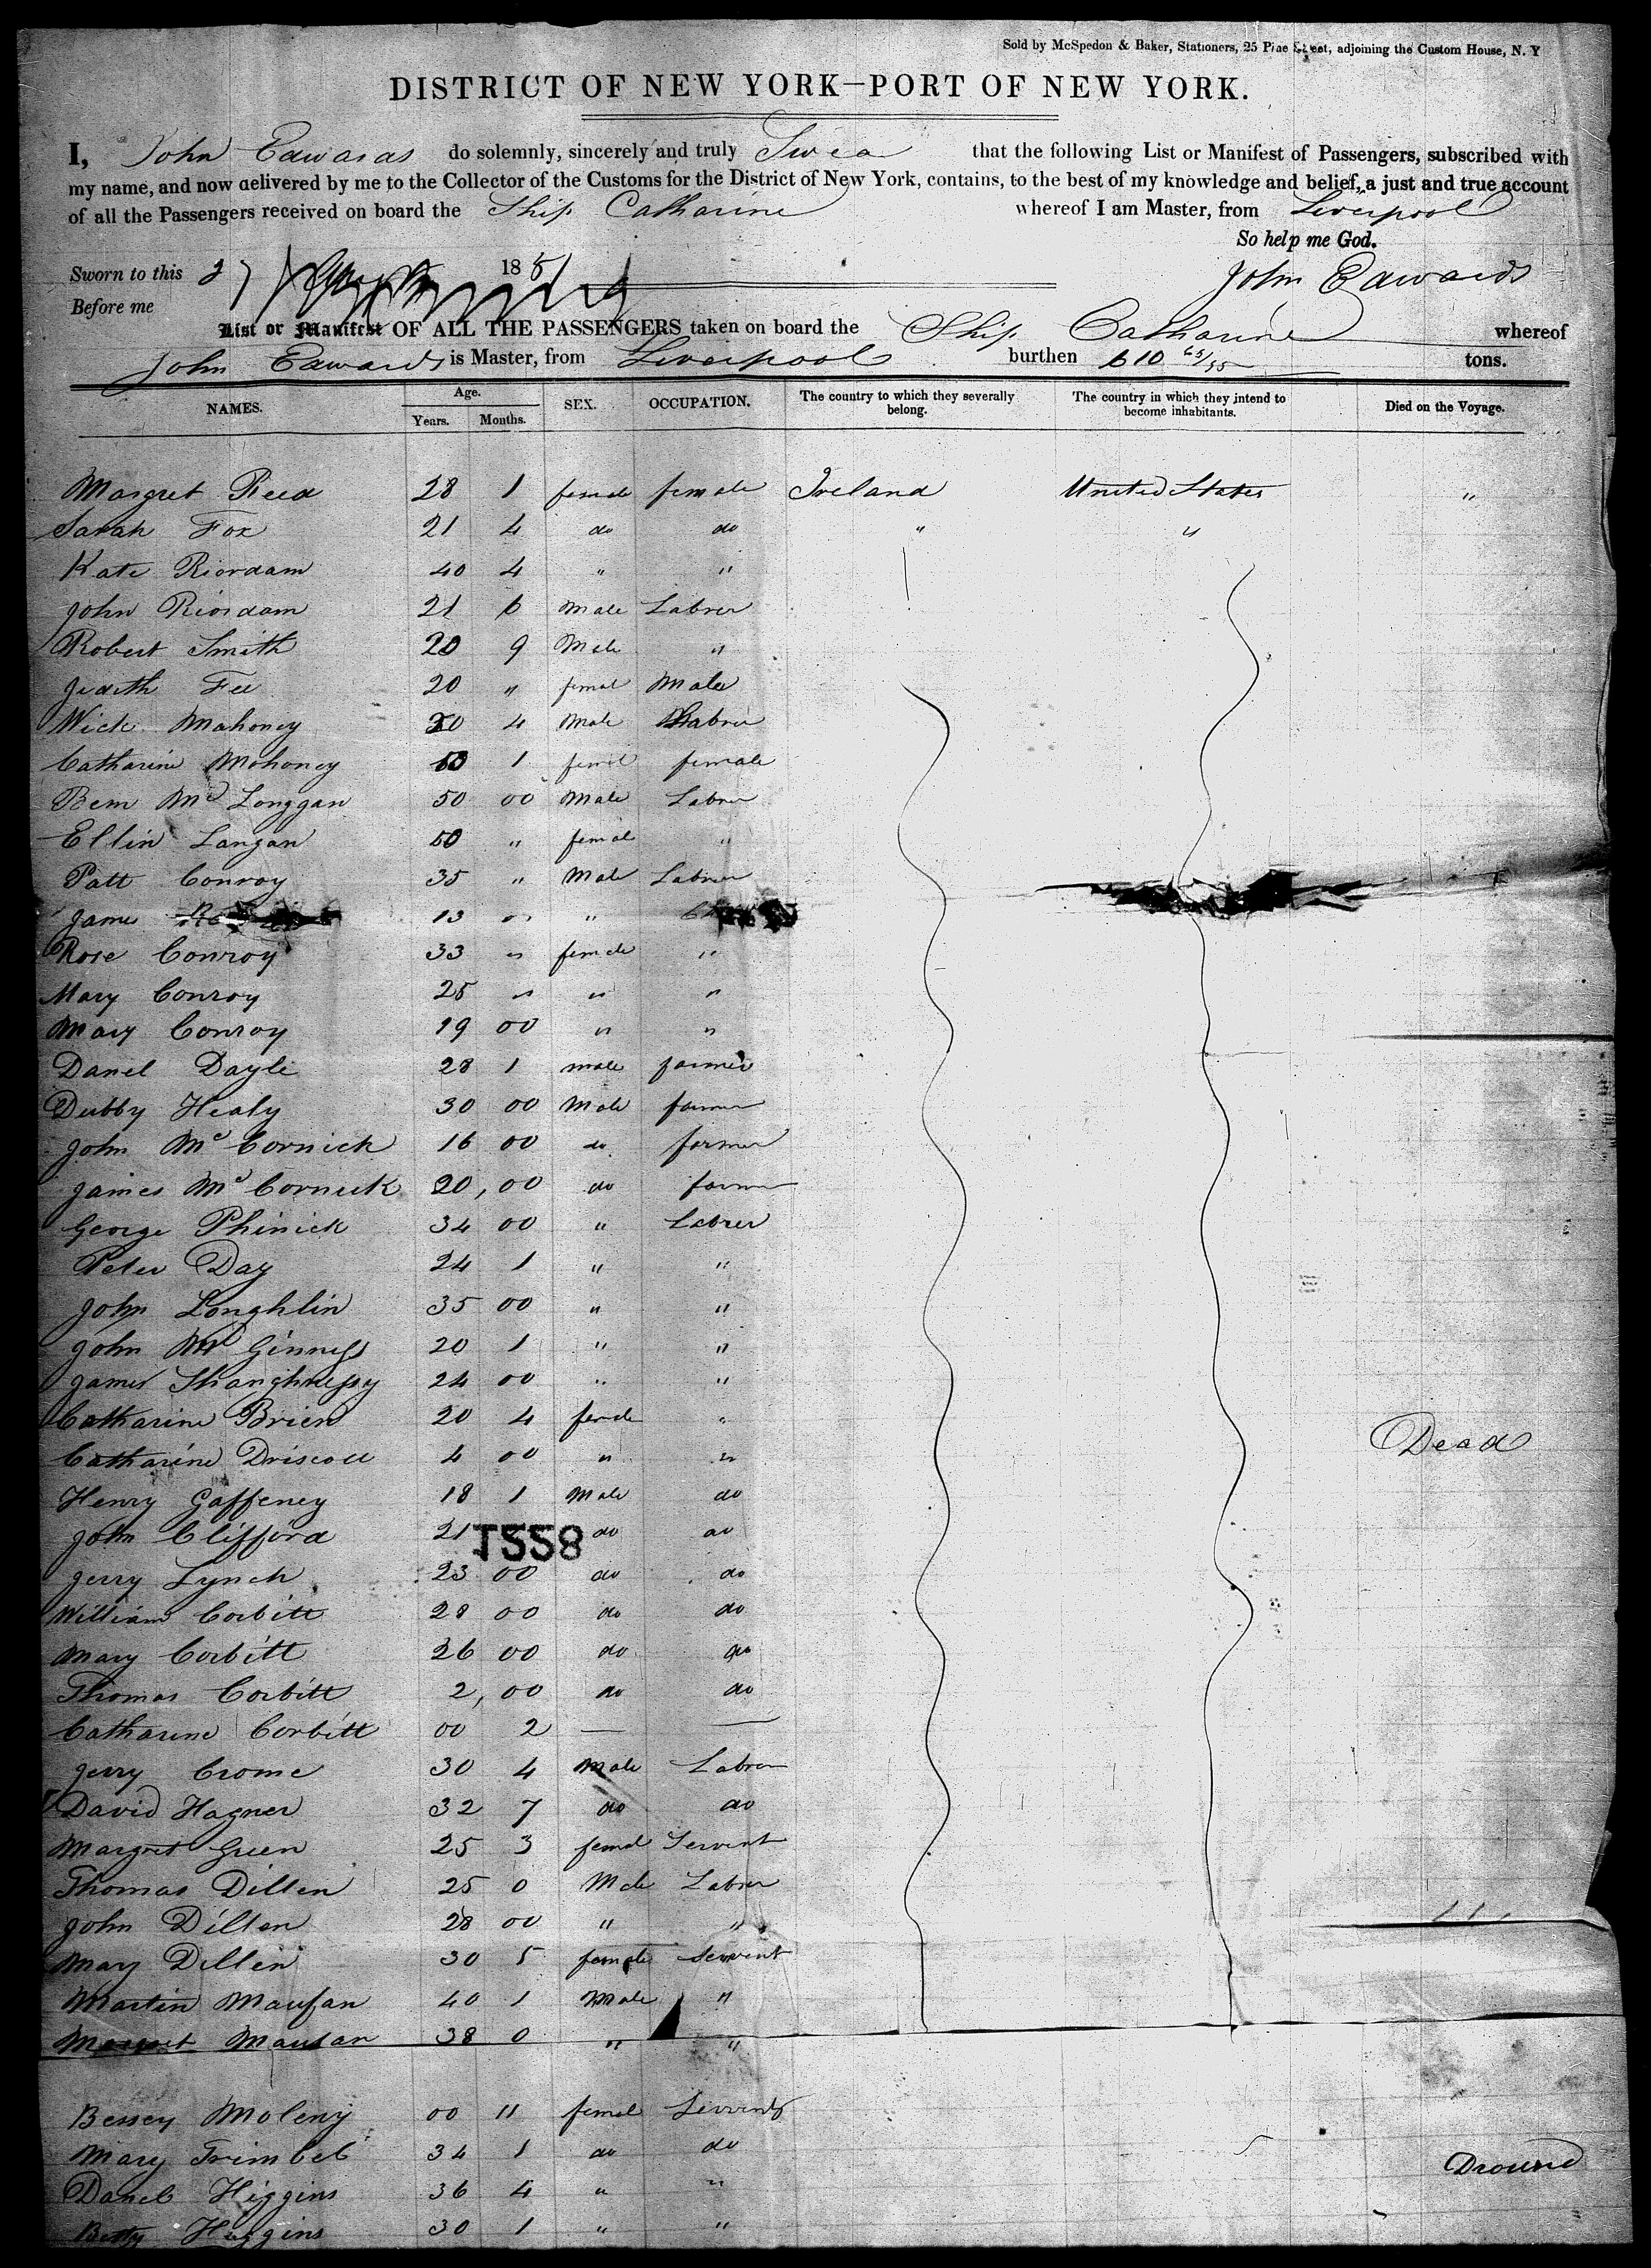 Sold by McSpedon & Baker, Stationers, 25 Pine Street, adjoining the Custom House, N. Y
DISTRICT OF NEW YORK—PORT OF NEW YORK.
I, John Edwards do solemnly, sincerely and truly Swea that the following List or Manifest of Passengers, subscribed with
my name, and now delivered by me to the Collector of the Customs for the District of New York, contains, to the best of my knowledge and belief, a just and true account
of all the Passengers received on board the Ship Catharine whereof I am Master, from Liverpool
So help me God.
Sworn to this 27 1851 John Edwards
Before me
List or Manifest OF ALL THE PASSENGERS taken on board the Ship Catharine whereof
John Edwards is Master, from Liverpool burthen 610 65/95 tons.
NAMES. Age. Years. Months. SEX. OCCUPATION. The country to which they severally belong. The country in which they intend to become inhabitants. Died on the Voyage.
Margret Reed 28 1 female female Ireland United States "
Sarah Fox 21 4 do do " "
Kate Riordam 40 4 " "
John Riordam 21 6 Male Labrer
Robert Smith 20 9 Male "
Judith Fee 20 " femal Male
Mick Mahoney 20 4 Male Labrer
Catharine Mohoney 50 1 femil female
Bem Mc Longgan 50 00 Male Labrer
Ellin Langan 50 " femal "
Patt Conroy 35 " Male Labrer
Jame 13 " "
Rose Conroy 33 " female "
Mary Conroy 25 " " "
Mary Conroy 19 00 " "
Danel Dayle 28 1 male farmer
Dubby Healy 30 00 Male farmer
John Mc Cornick 16 00 do farmer
James Mc Cornick 20, 00 do farmer
George Phinick 34 00 " Labrer
Peter Day 24 1 " "
John Loughlin 35 00 " "
John Mc Ginness 20 1 " "
James Shanghnessy 24 00 " "
Catharine Brien 20 4 female "
Catharine Driscoll 4 00 " " Dead
Henry Gaffeney 18 1 Male do
John Clifford 21 do do
1558
Jerry Lynch 23 00 do do
William Corbitt 28 00 do do
Mary Corbitt 26 00 do do
Thomas Corbitt 2, 00 do do
Catharine Corbitt 00 2 — —
Jerry Crome 30 4 Male Labrer
David Hagner 32 7 do do
Margret Green 25 3 femal Servent
Thomas Dillen 25 0 Male Labrer
John Dillen 28 00 " "
Mary Dillen 30 5 female Servent
Martin Maufan 40 1 Male "
Margret Maufan 38 0 " "
Bessey Moleny 00 11 femal Servent
Mary Trimbel 34 1 do do Dround
Danel Higgins 36 4 " "
Betty Higgins 30 1 " "